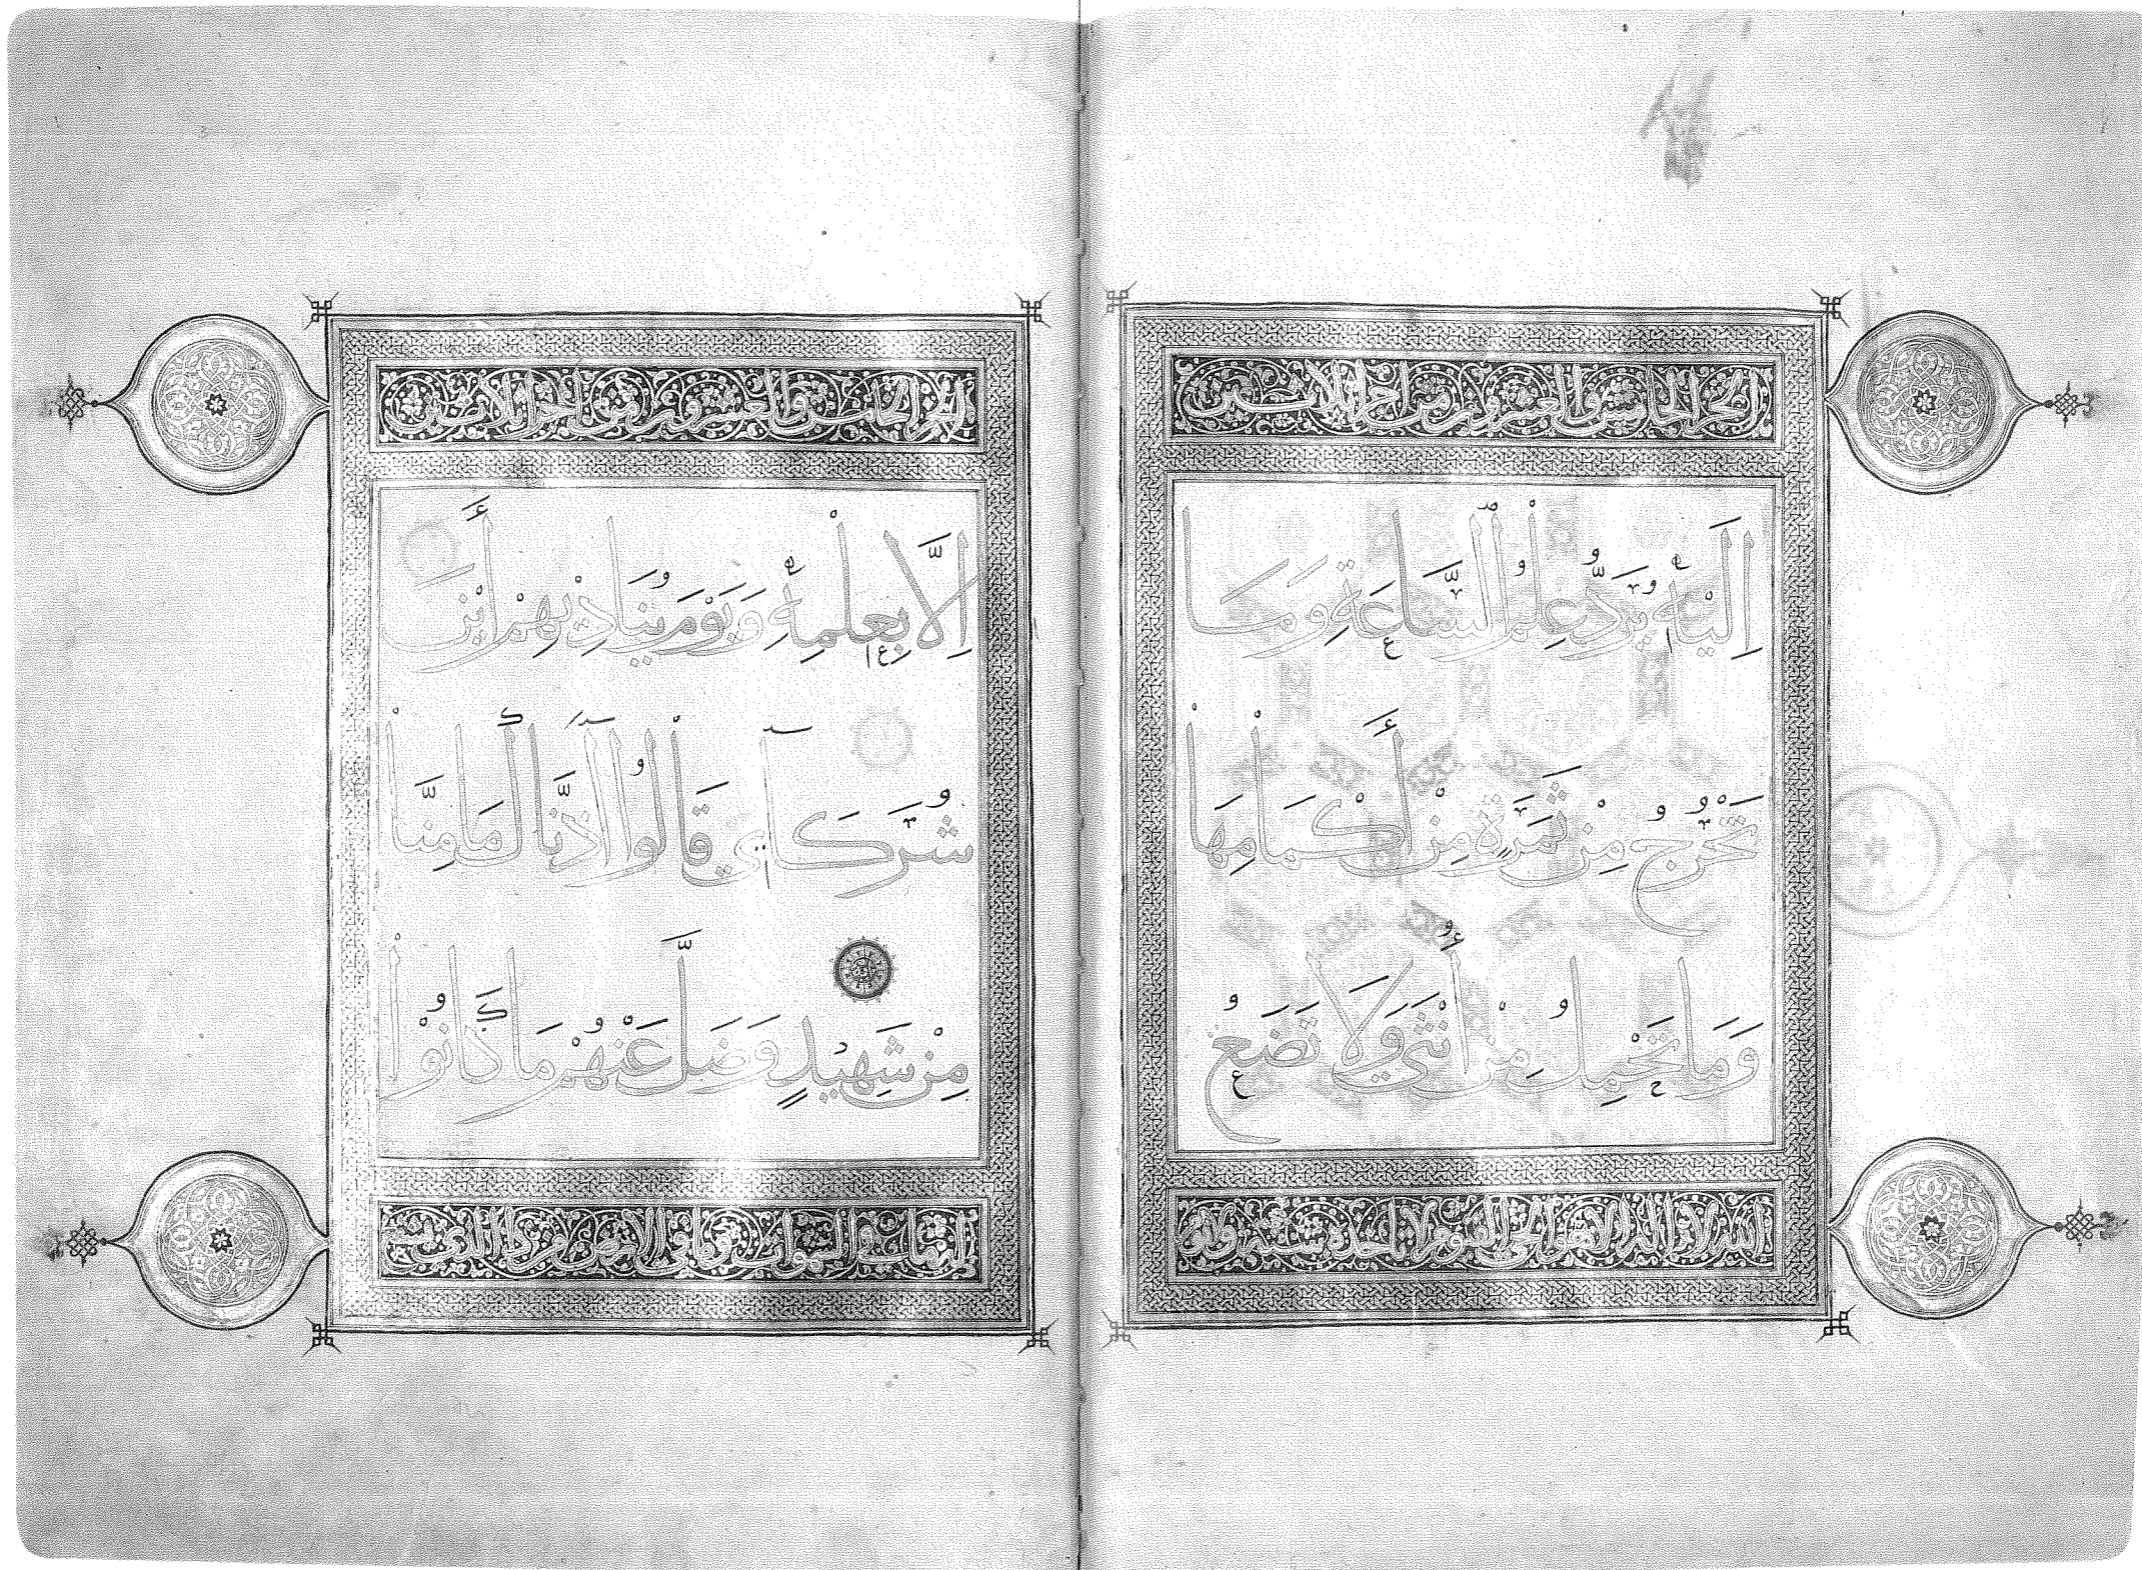 الجزء الخامس والعشرون من
إِلَيْهِ يُرَدُّ عِلْمُ السَّاعَةِ وَمَا
تَخْرُجُ مِنْ ثَمَرَةٍ مِنْ أَكْمَامِهَا
وَمَا تَحْمِلُ مِنْ أُنْثَى وَلَا تَضَعُ
الله لا اله الا هو الحي القيوم لا تاخذه سنة ولا نوم
الجزء الخامس والعشرون من
إِلَّا بِعِلْمِهِ وَيَوْمَ يُنَادِيْهِمْ أَيْنَ
شُرَكَآيِ قَالُوا آذَنَّاكَ مَا مِنَّا
مِنْ شَهِيدٍ وَضَلَّ عَنْهُمْ مَا كَانُوا
له ما في السموات وما في الارض من ذا الذي